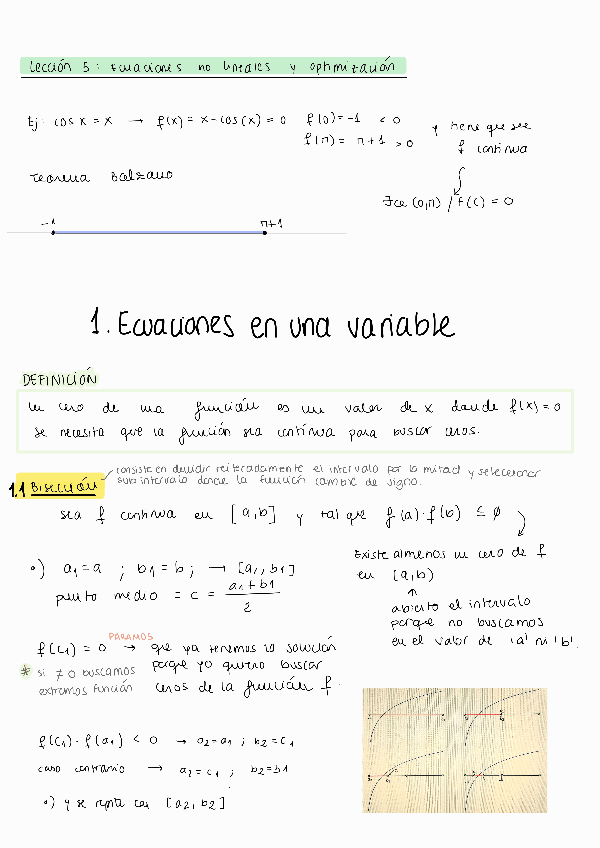 Lección 5: Ecuaciones no lineales y optimización
Ej: cos x = x → f(x) = x - cos(x) = 0 f(0) = -1 < 0
f(π) = π + 1 > 0
y tiene que ser
f continua
Teorema Bolzano
∃ c∈ (0,π) / f(c) = 0
-1 π+1
1. Ecuaciones en una variable
DEFINICIÓN
Un cero de una función es un valor de x donde f(x) = 0
Se necesita que la función sea continua para buscar ceros.
1.1 Bisección
consiste en dividir reiteradamente el intervalo por la mitad y seleccionar
subintervalo donde la función cambie de signo.
sea f continua en [a,b] y tal que f(a)·f(b) ≤ ø
Existe almenos un cero de f
en (a,b)
abierto el intervalo
porque no buscamos
en el valor de 'a' ni 'b'.
•) a1 = a ; b1 = b ; → [a1, b1]
punto medio = c = a1 + b1 / 2
PARAMOS
f(c1) = 0 → que ya tenemos la solución
porque yo quiero buscar
ceros de la función f.
* si ≠ 0 buscamos
extremos función
f(c1) · f(a1) < 0 → a2 = a1 ; b2 = c1
caso contrario → a2 = c1 ; b2 = b1
•) y se repite con [a2, b2]